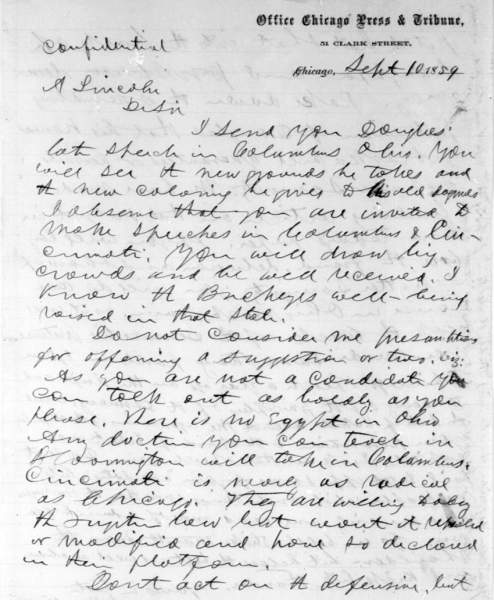 Office Chicago Press & Tribune,
51 CLARK STREET,
Confidential
Chicago, Sept 10 1859
A Lincoln
Dr Sir
I send you Douglas'
late speech in Columbus Ohio. You
will see the new grounds he takes and
the new coloring he gives to his old dogmas
I observe that you are invited to
make speeches in Columbus & Cin-
cinnati. You will draw big
crowds and be well received. I
know the Buckeyes well - being
raised in that State.
Do not consider me presumptious
for offering a suggestion or two. viz:
As you are not a candidate you
can talk out as boldly as you
please. There is no Egypt in Ohio
Any doctrine you can teach in
Bloomington will take in Columbus.
Cincinnati is nearly as radical
as Chicago. They are willing to obey
the fugitive law but want it repealed
or modified and have so declared
in their platform.
Dont act on the defensive, but